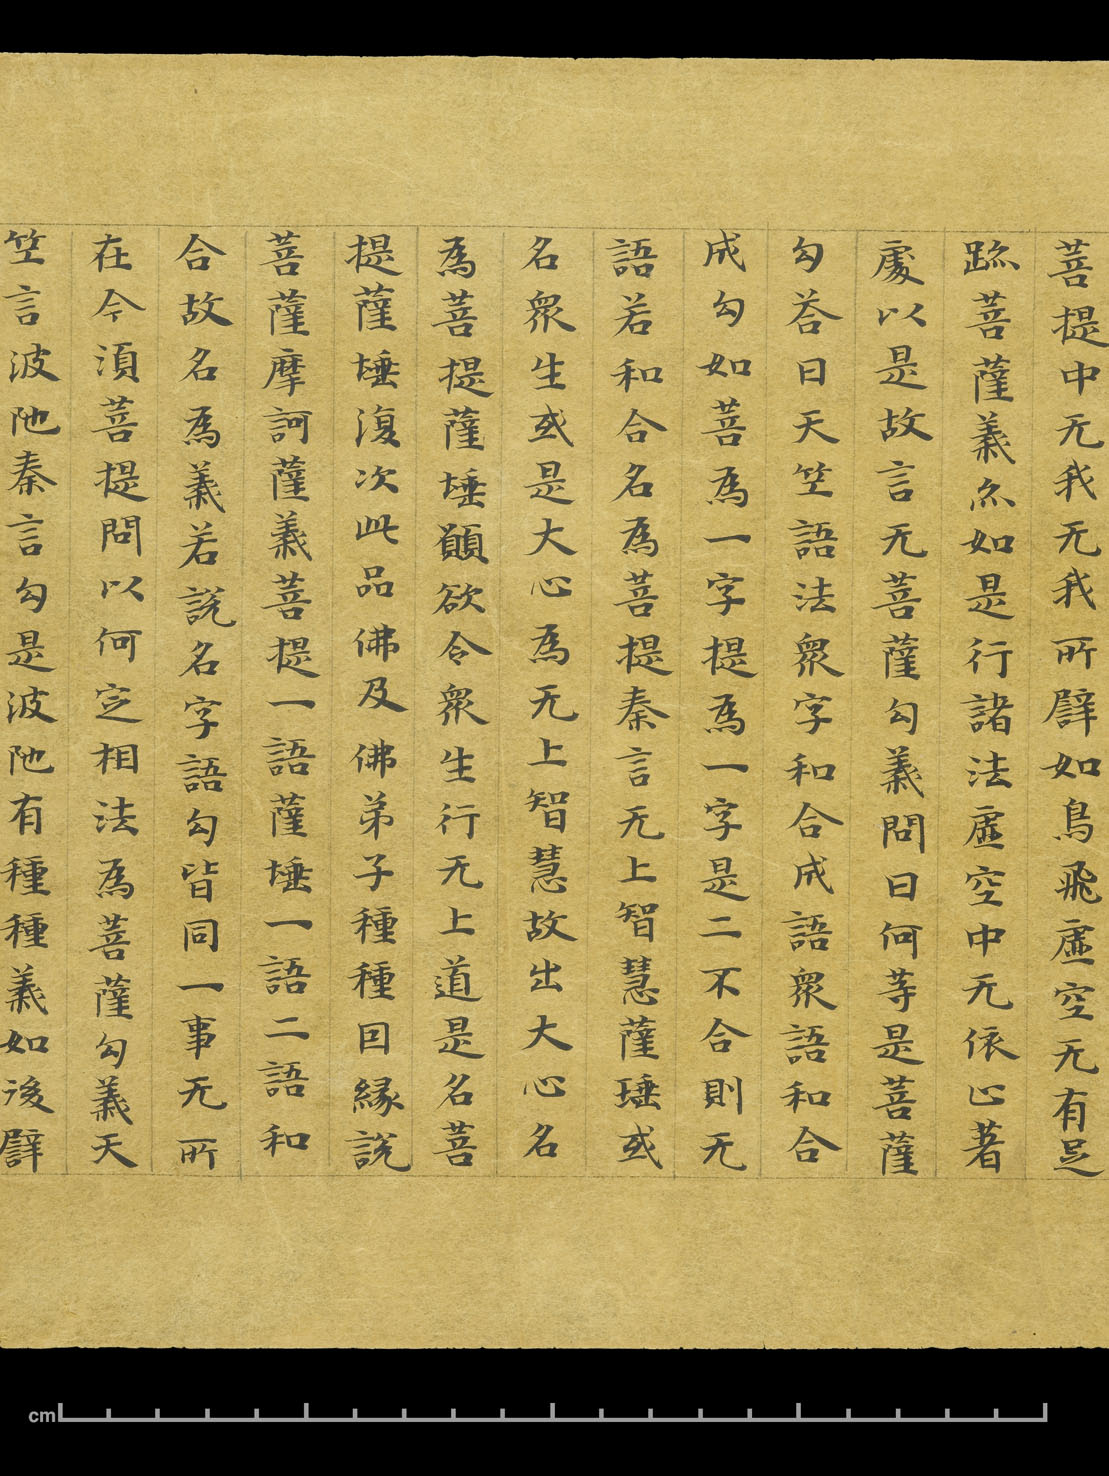 菩提中无我无我所譬如鳥飛虛空无有足
跡菩薩義亦如是行諸法虛空中无依止著
處以是故言无菩薩句義問曰何等是菩薩
句荅曰天竺語法眾字和合成語眾語和合
成句如菩為一字提為一字是二不合則无
語若和合名為菩提秦言无上智慧薩埵或
名眾生或是大心為无上智慧故出大心名
為菩提薩埵願欲令眾生行无上道是名菩
提薩埵復次此品佛及佛弟子種種因緣說
菩薩摩訶薩義菩提一語薩埵一語二語和
合故名為義若說名字語句皆同一事无所
在今湏菩提問以何定相法為菩薩句義天
竺言波陁秦言句是波陁有種種義如後譬